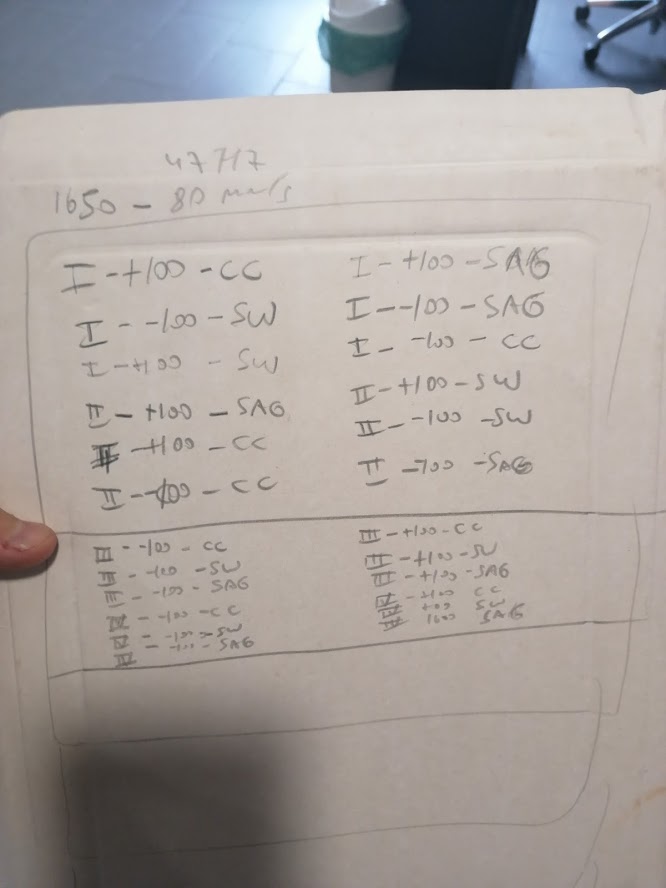 47717
1650 - 80 mm/s
I - +100 - CC
I - -100 - SW
I - +100 - SW
II - +100 - SAG
II - +100 - CC
II - -100 - CC
I - +100 - SAG
I - -100 - SAG
I - -100 - CC
II - +100 - SW
II - -100 - SW
II - -100 - SAG
III - -100 - CC
III - -100 - SW
III - -100 - SAG
- -100 - CC
- -100 - SW
- -100 - SAG
III - +100 - CC
III - +100 - SW
III - +100 - SAG
- +100 CC
+100 SW
SAG